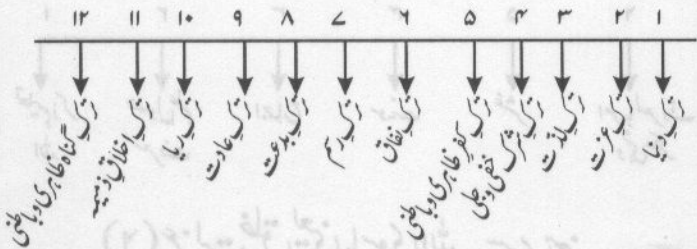 ۱ ۲ ۳ ۴ ۵ ۶ ۷ ۸ ۹ ۱۰ ۱۱ ۱۲
ترکِ دنیا
ترکِ عزت
ترکِ لذت
ترکِ شرک خفی و جلی
ترکِ کفر ظاہری و باطنی
ترکِ نفاق
ترکِ رسم
ترکِ بدعت
ترکِ عادت
ترکِ ریا
ترکِ اخلاقِ ذمیمہ
ترکِ گناہ ظاہری و باطنی